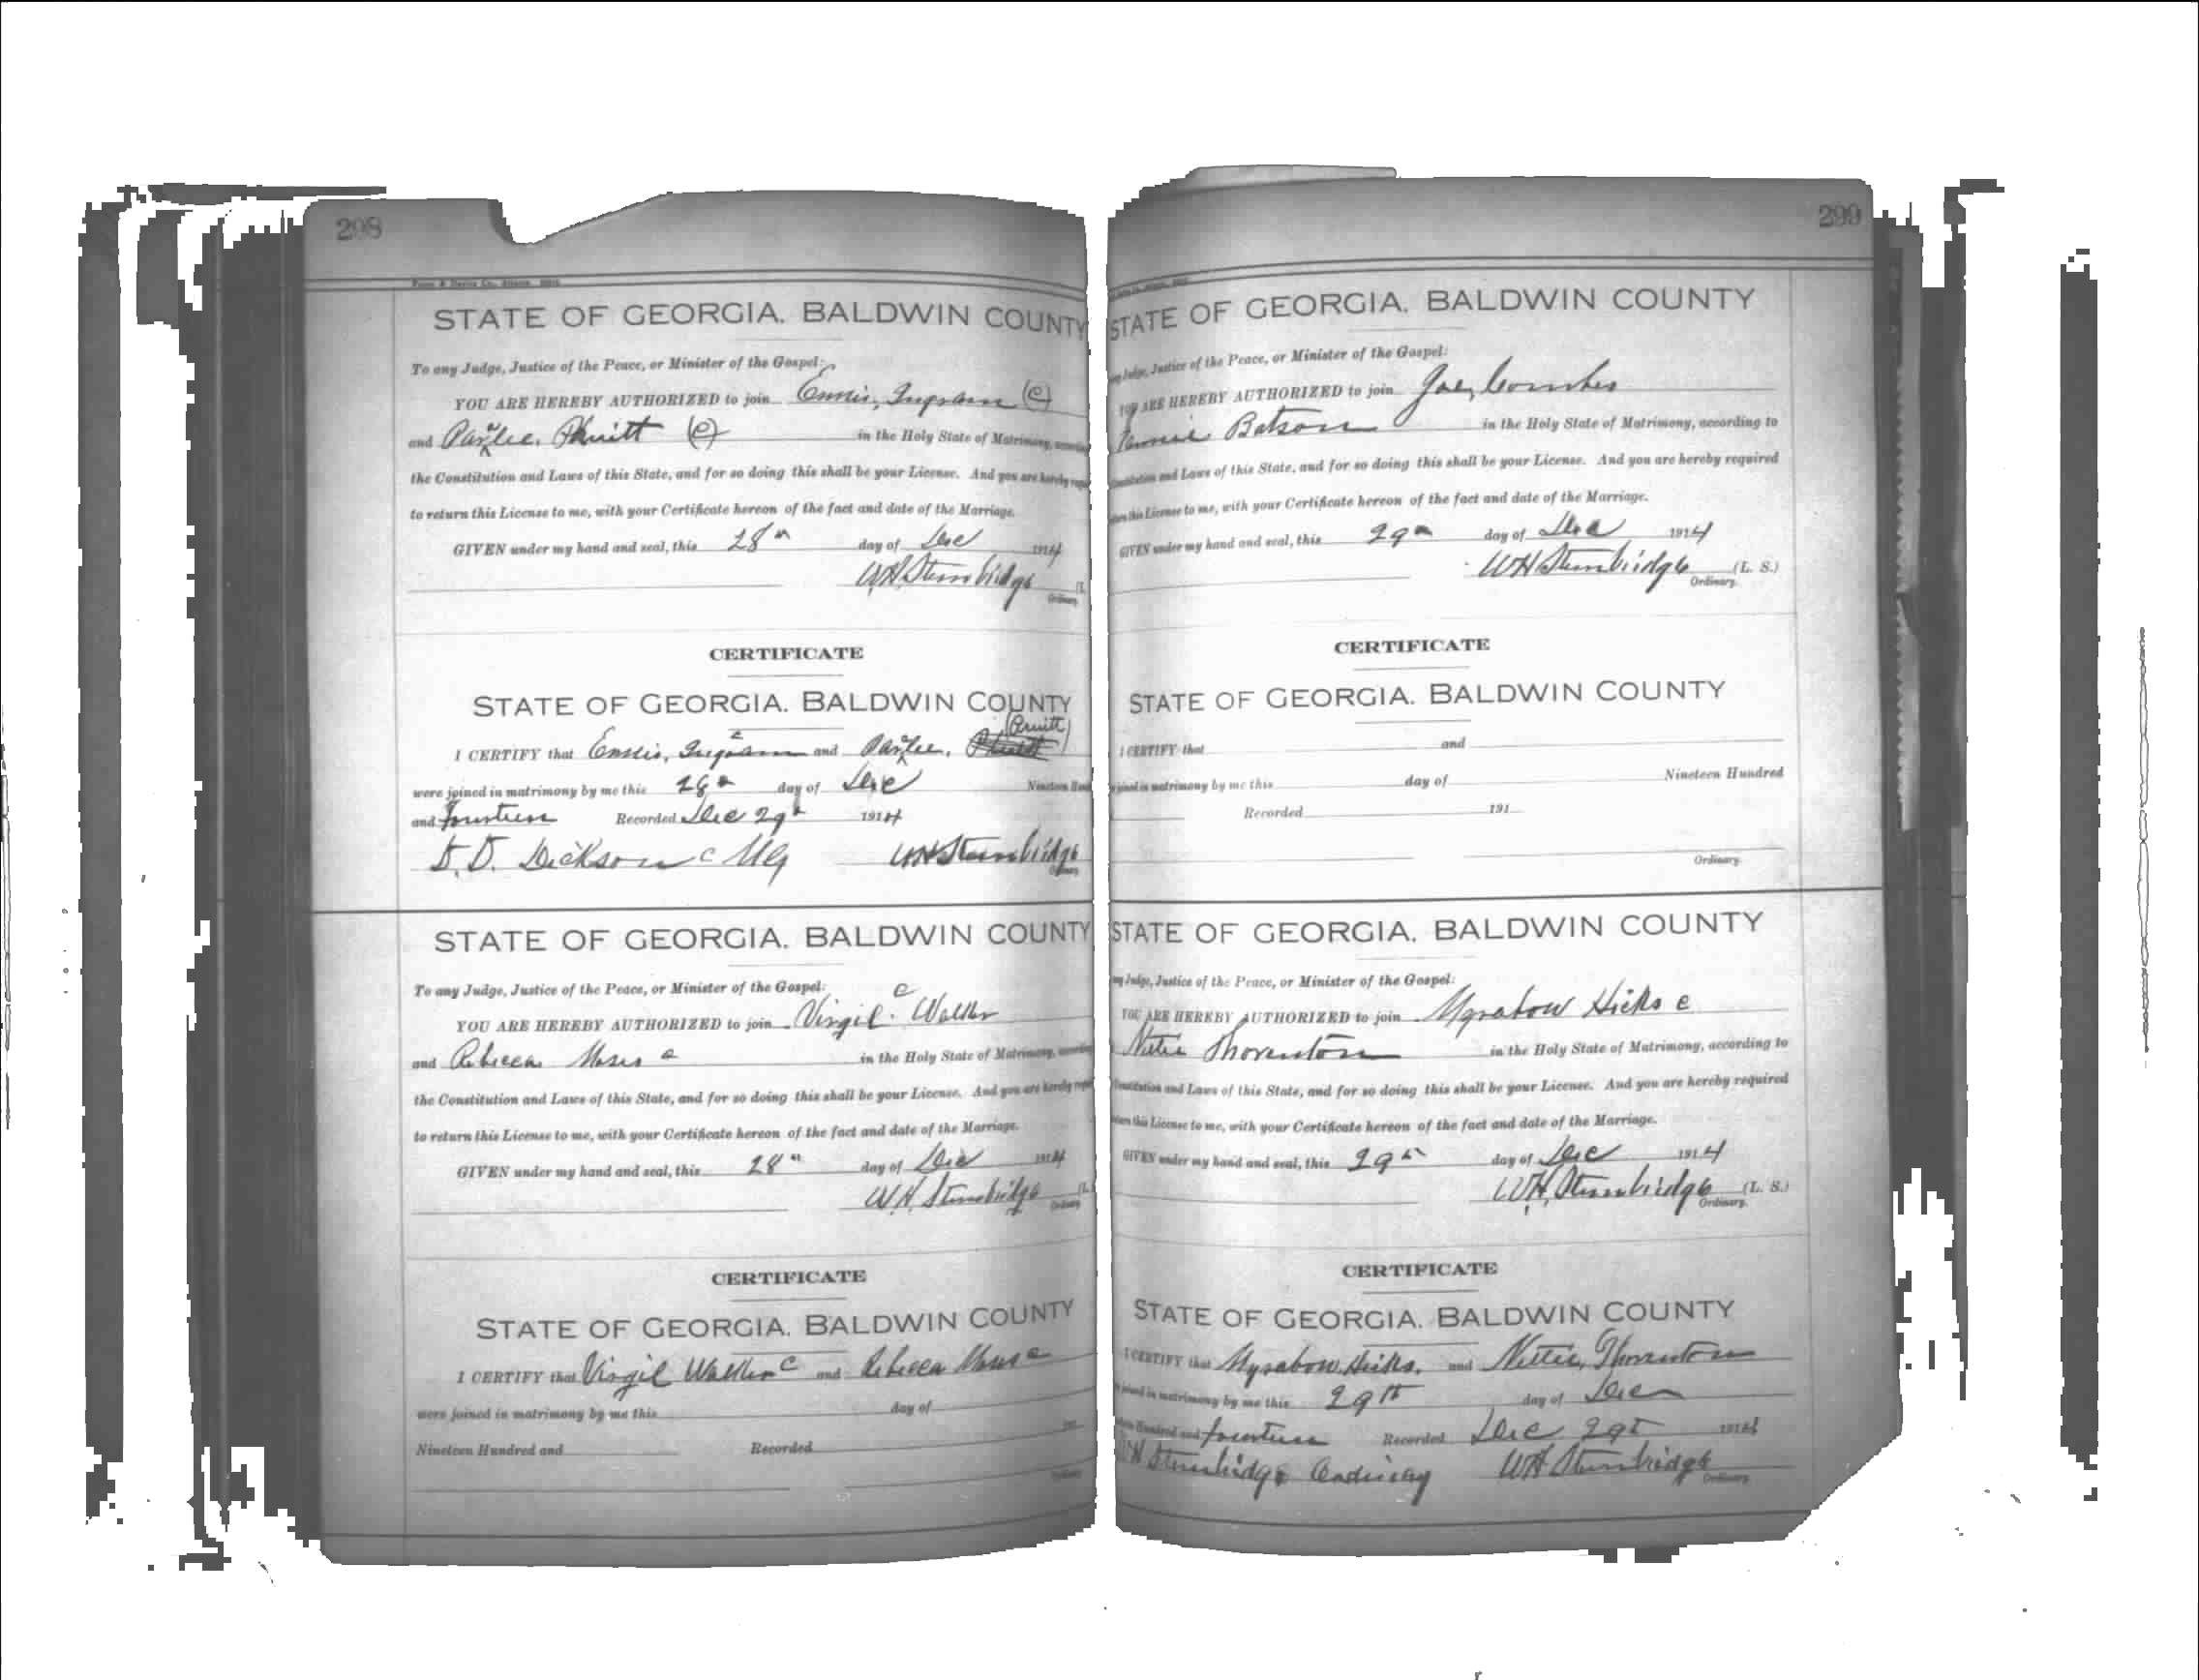 298
STATE OF GEORGIA. BALDWIN COUNTY
To any Judge, Justice of the Peace, or Minister of the Gospel:
YOU ARE HEREBY AUTHORIZED to join Ennis, Ingram (c)
and Parlee, Pruitt (c) in the Holy State of Matrimony, according
the Constitution and Laws of this State, and for so doing this shall be your License. And you are hereby
to return this License to me, with your Certificate hereon of the fact and date of the Marriage.
GIVEN under my hand and seal, this 28th day of Dec 1914
W.H. Stembridge (L
Ordinary
CERTIFICATE
STATE OF GEORGIA. BALDWIN COUNTY
(Pruitt)
I CERTIFY that Ennis, Ingram c and Parlee,
were joined in matrimony by me this 28th day of Dec Nineteen
and Fourteen Recorded Dec 29th 1914
Dickson c MG WH Stembridge
Ordinary
STATE OF GEORGIA. BALDWIN COUNTY
To any Judge, Justice of the Peace, or Minister of the Gospel:
YOU ARE HEREBY AUTHORIZED to join Virgil Walker c
and Rebecca Moses c in the Holy State of Matrimony, according
the Constitution and Laws of this State, and for so doing this shall be your License. And you are hereby
to return this License to me, with your Certificate hereon of the fact and date of the Marriage.
GIVEN under my hand and seal, this 28th day of Dec 1914
W.H. Stembridge (L
Ordinary
CERTIFICATE
STATE OF GEORGIA. BALDWIN COUNTY
I CERTIFY that Virgil Walker c and Rebecca Moses c
were joined in matrimony by me this day of
Nineteen Hundred and Recorded
299
STATE OF GEORGIA. BALDWIN COUNTY
Judge, Justice of the Peace, or Minister of the Gospel:
YOU ARE HEREBY AUTHORIZED to join Joe, Combes
Batson in the Holy State of Matrimony, according to
Constitution and Laws of this State, and for so doing this shall be your License. And you are hereby required
this License to me, with your Certificate hereon of the fact and date of the Marriage.
GIVEN under my hand and seal, this 29th day of Dec 1914
WH Stembridge (L. S.)
Ordinary.
CERTIFICATE
STATE OF GEORGIA. BALDWIN COUNTY
I CERTIFY that and
joined in matrimony by me this day of Nineteen Hundred
Recorded 191
Ordinary.
STATE OF GEORGIA. BALDWIN COUNTY
Judge, Justice of the Peace, or Minister of the Gospel:
YOU ARE HEREBY AUTHORIZED to join Myrabow Hicks c
Nettie Thornton in the Holy State of Matrimony, according to
Constitution and Laws of this State, and for so doing this shall be your License. And you are hereby required
this License to me, with your Certificate hereon of the fact and date of the Marriage.
GIVEN under my hand and seal, this 29th day of Dec 1914
WH, Stembridge (L. S.)
Ordinary.
CERTIFICATE
STATE OF GEORGIA. BALDWIN COUNTY
I CERTIFY that Myrabow, Hicks, and Nettie, Thornton
joined in matrimony by me this 29th day of Dec
Hundred and fourteen Recorded Dec 29th 1914
WH Stembridge Ordinary WH Stembridge
Ordinary